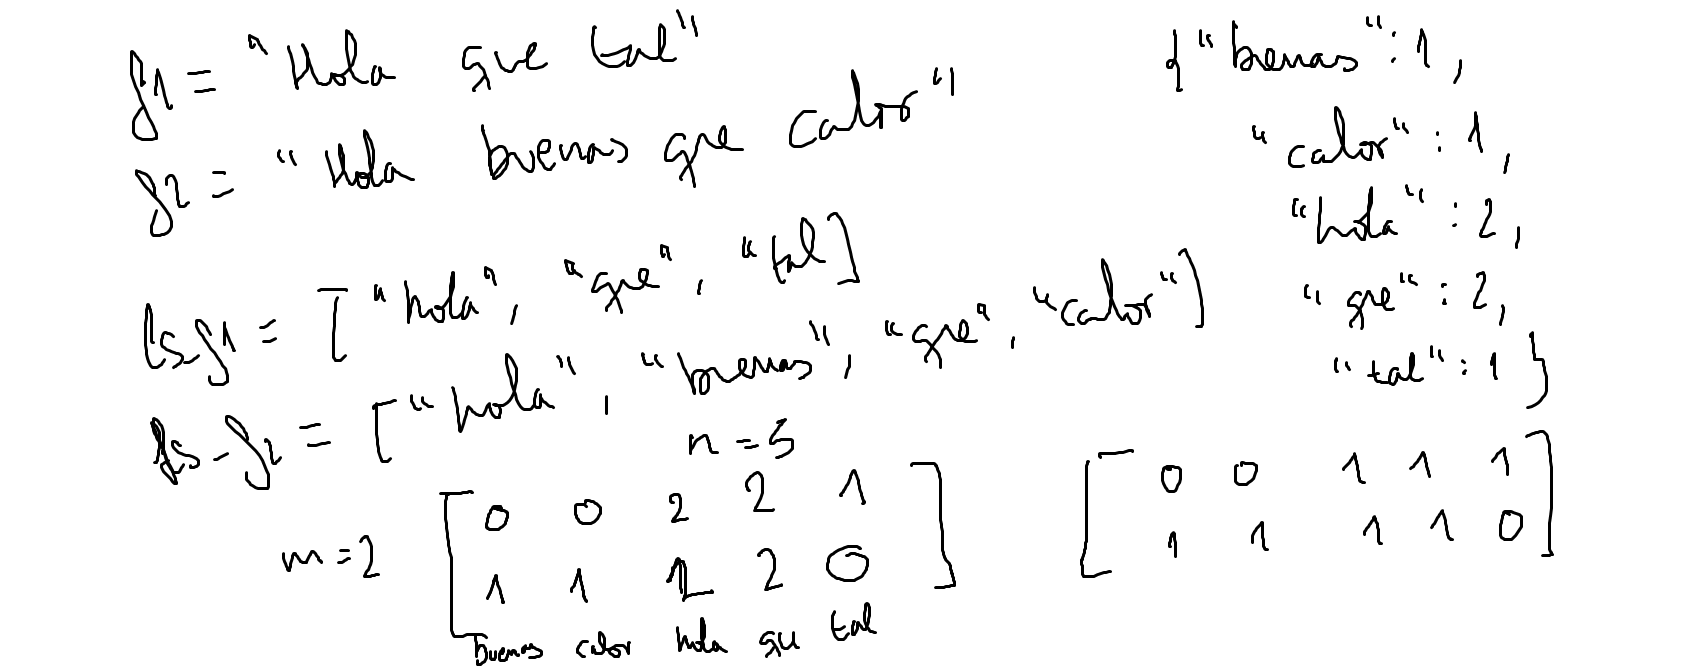 f1 = "Hola que tal"
f2 = "Hola buenas que calor"
ls_f1 = ["hola", "que", "tal]
ls_f2 = ["hola", "buenas", "que", "calor"]
{"buenas": 1,
"calor": 1,
"hola": 2,
"que": 2,
"tal": 1}
n = 5
m = 2
[0 0 2 2 1
1 1 2 2 0]
buenas calor hola que tal
[0 0 1 1 1
1 1 1 1 0]